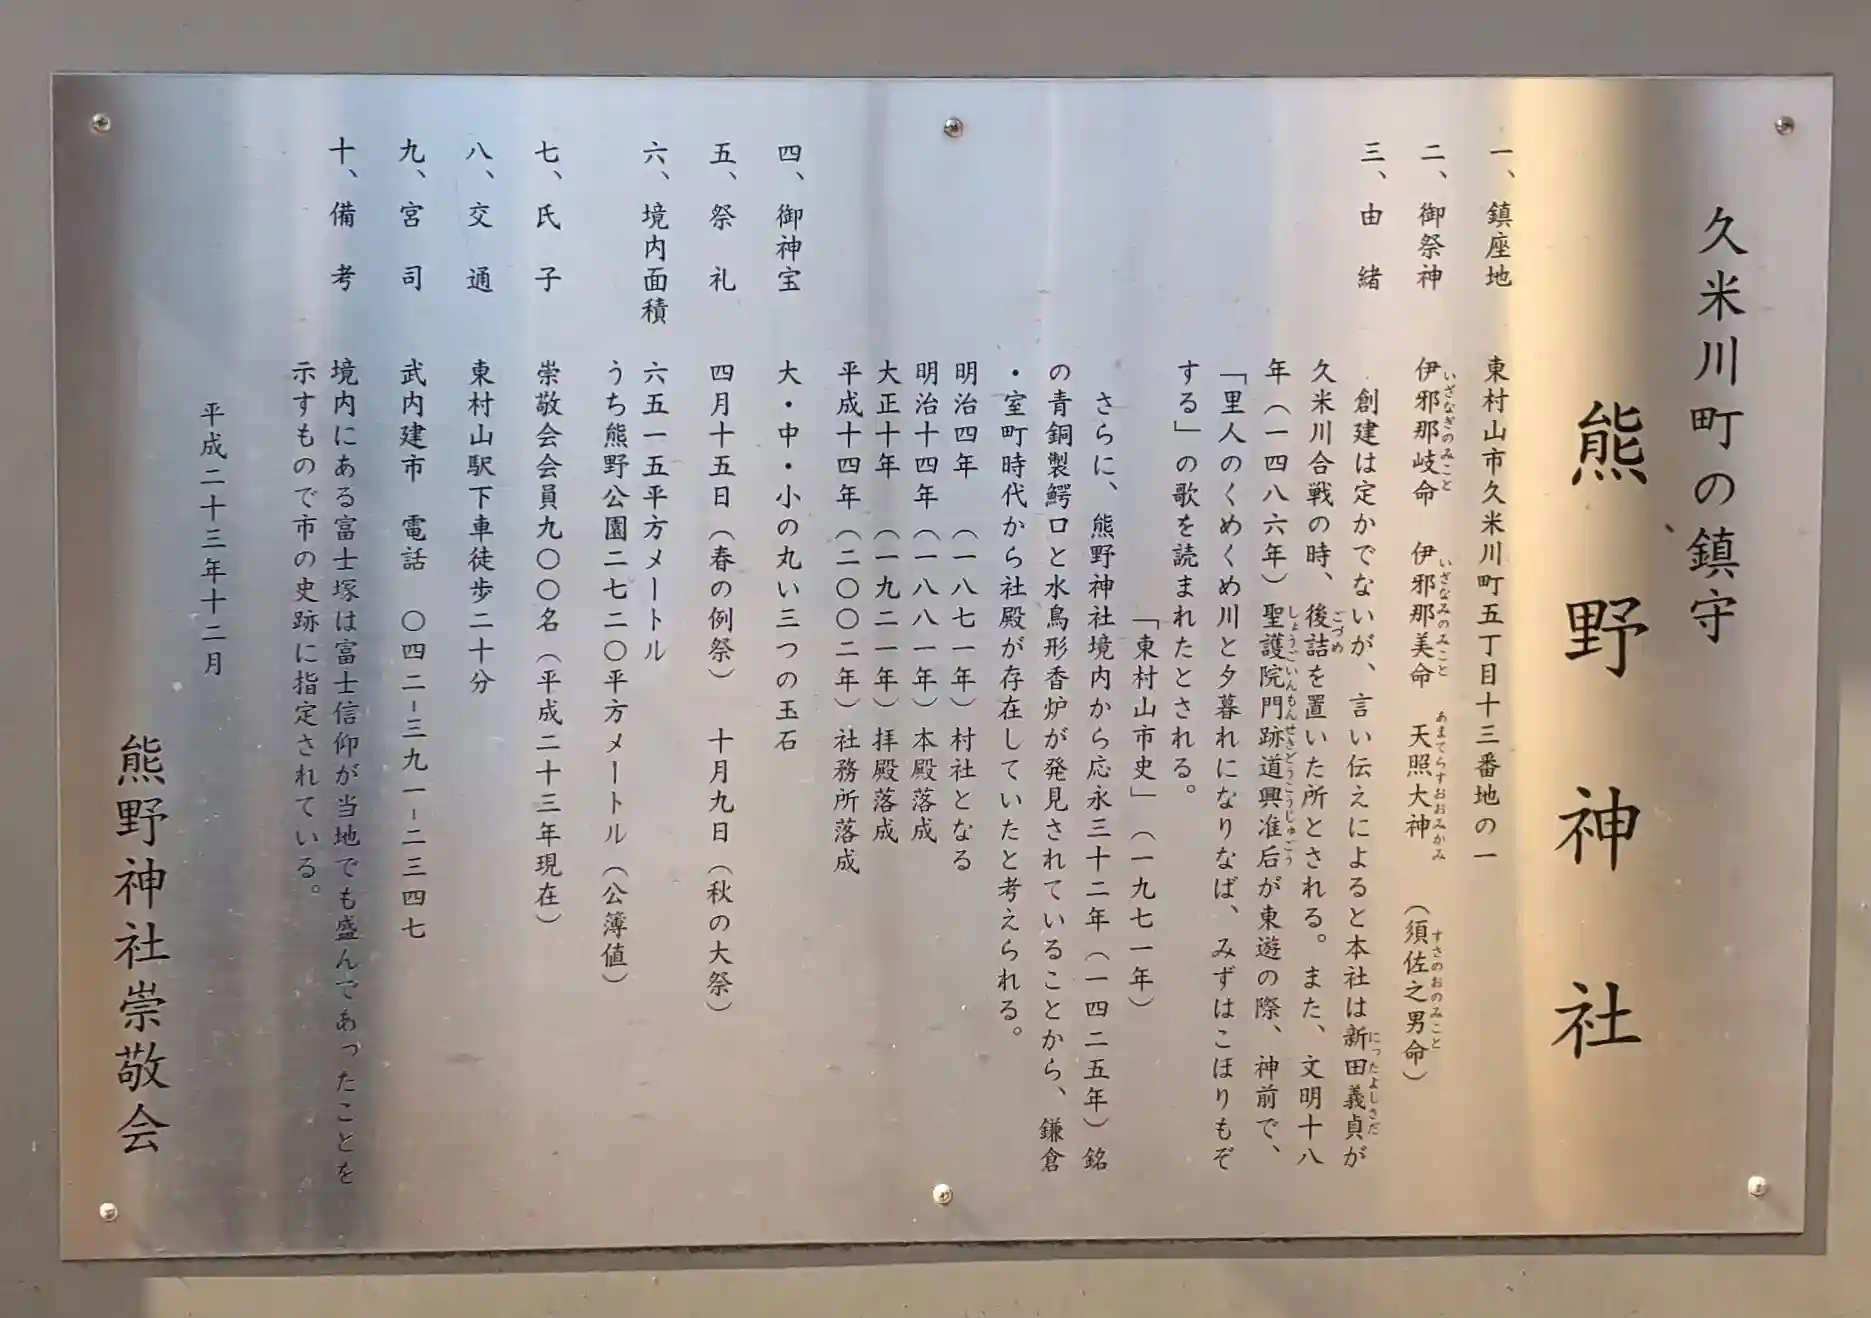 久米川町の鎮守
熊野神社
一、鎮座地 東村山市久米川町五丁目十三番地の一
二、御祭神 伊邪那岐命 伊邪那美命 天照大神 (須佐之男命)
いざなぎのみこと いざなみのみこと あまてらすおおみかみ すさのおのみこと
三、由緒 創建は定かでないが、言い伝えによると本社は新田義貞が
にったよしさだ
久米川合戦の時、後詰を置いた所とされる。また、文明十八
ごづめ
年(一四八六年)聖護院門跡道興准后が東遊の際、神前で、
しょうごいんもんせきどうこうじゅごう
「里人のくめくめ川と夕暮れになりなば、みずはこほりもぞ
する」の歌を読まれたとされる。
「東村山市史」(一九七一年)
さらに、熊野神社境内から応永三十二年(一四二五年)銘
の青銅製鰐口と水鳥形香炉が発見されていることから、鎌倉
・室町時代から社殿が存在していたと考えられる。
明治四年 (一八七一年)村社となる
明治十四年(一八八一年)本殿落成
大正十年 (一九二一年)拝殿落成
平成十四年(二〇〇二年)社務所落成
四、御神宝 大・中・小の丸い三つの玉石
五、祭礼 四月十五日(春の例祭) 十月九日(秋の大祭)
六、境内面積 六五一五平方メートル
うち熊野公園二七二〇平方メートル(公簿値)
七、氏子 崇敬会会員九〇〇名(平成二十三年現在)
八、交通 東村山駅下車徒歩二十分
九、宮司 武内建市 電話 〇四二-三九一-二三四七
十、備考 境内にある富士塚は富士信仰が当地でも盛んであったことを
示すもので市の史跡に指定されている。
平成二十三年十二月
熊野神社崇敬会